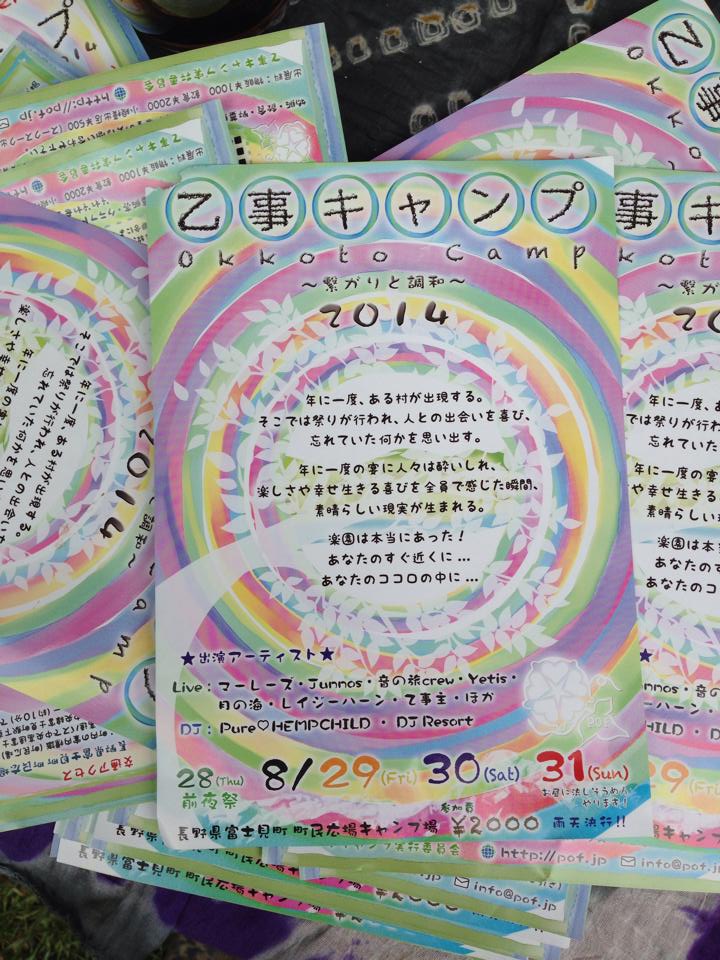 乙事キャンプ
Okkoto Camp
～繋がりと調和～
2014
年に一度、ある村が出現する。
そこでは祭りが行われ、人との出会いを喜び、
忘れていた何かを思い出す。
年に一度の宴に人々は酔いしれ、
楽しさや幸せ生きる喜びを全員で感じた瞬間、
素晴らしい現実が生まれる。
楽園は本当にあった！
あなたのすぐ近くに...
あなたのココロの中に...
★出演アーティスト★
Live：マーレーズ・Junnos・音の旅crew・Yetis・
月の海・レイジーハーン・乙事主・ほか
DJ：Pure♡HEMPCHILD・DJ Resort
28(Thu) 8/29(Fri) 30(Sat) 31(Sun)
前夜祭
お昼に流しそうめん
やります！
参加費
長野県富士見町 町民広場キャンプ場 ¥2000 雨天決行!!
POF
http://pof.jp
info@pof.jp
info@pof.jp
長野県富士見町 町民広場キャンプ場
長野県富士見町 町民広場キャンプ場
乙事キャンプ実行委員会
http://pof.jp
出展料：物販¥1000 飲食¥2000
交通アクセス